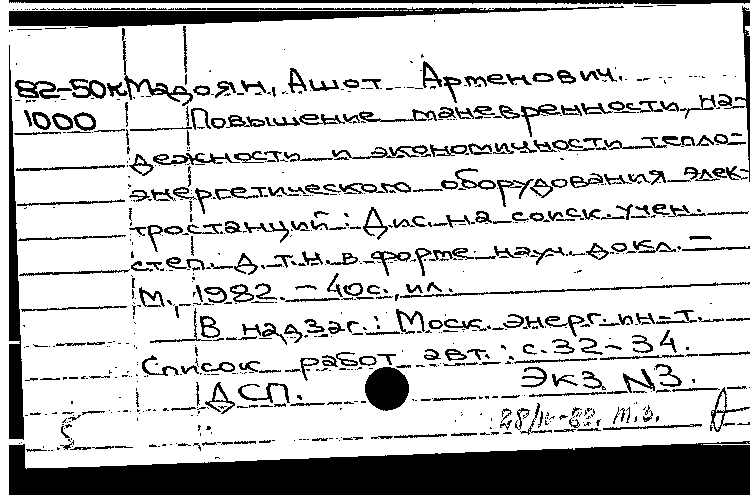 82-50к Мадоян, Ашот Арменович.
1000 Повышение маневренности, на-
дежности и экономичности тепло-
энергетического оборудования элек-
тростанций: Дис. на соиск. учен.
степ. д.т.н. в форме науч. докл. –
М., 1982. – 40с., ил.
В надзаг.: Моск. энерг. ин-т.
Список работ авт.: с. 32-34.
ДСП. Экз N3.
28/IV-82. т.э.